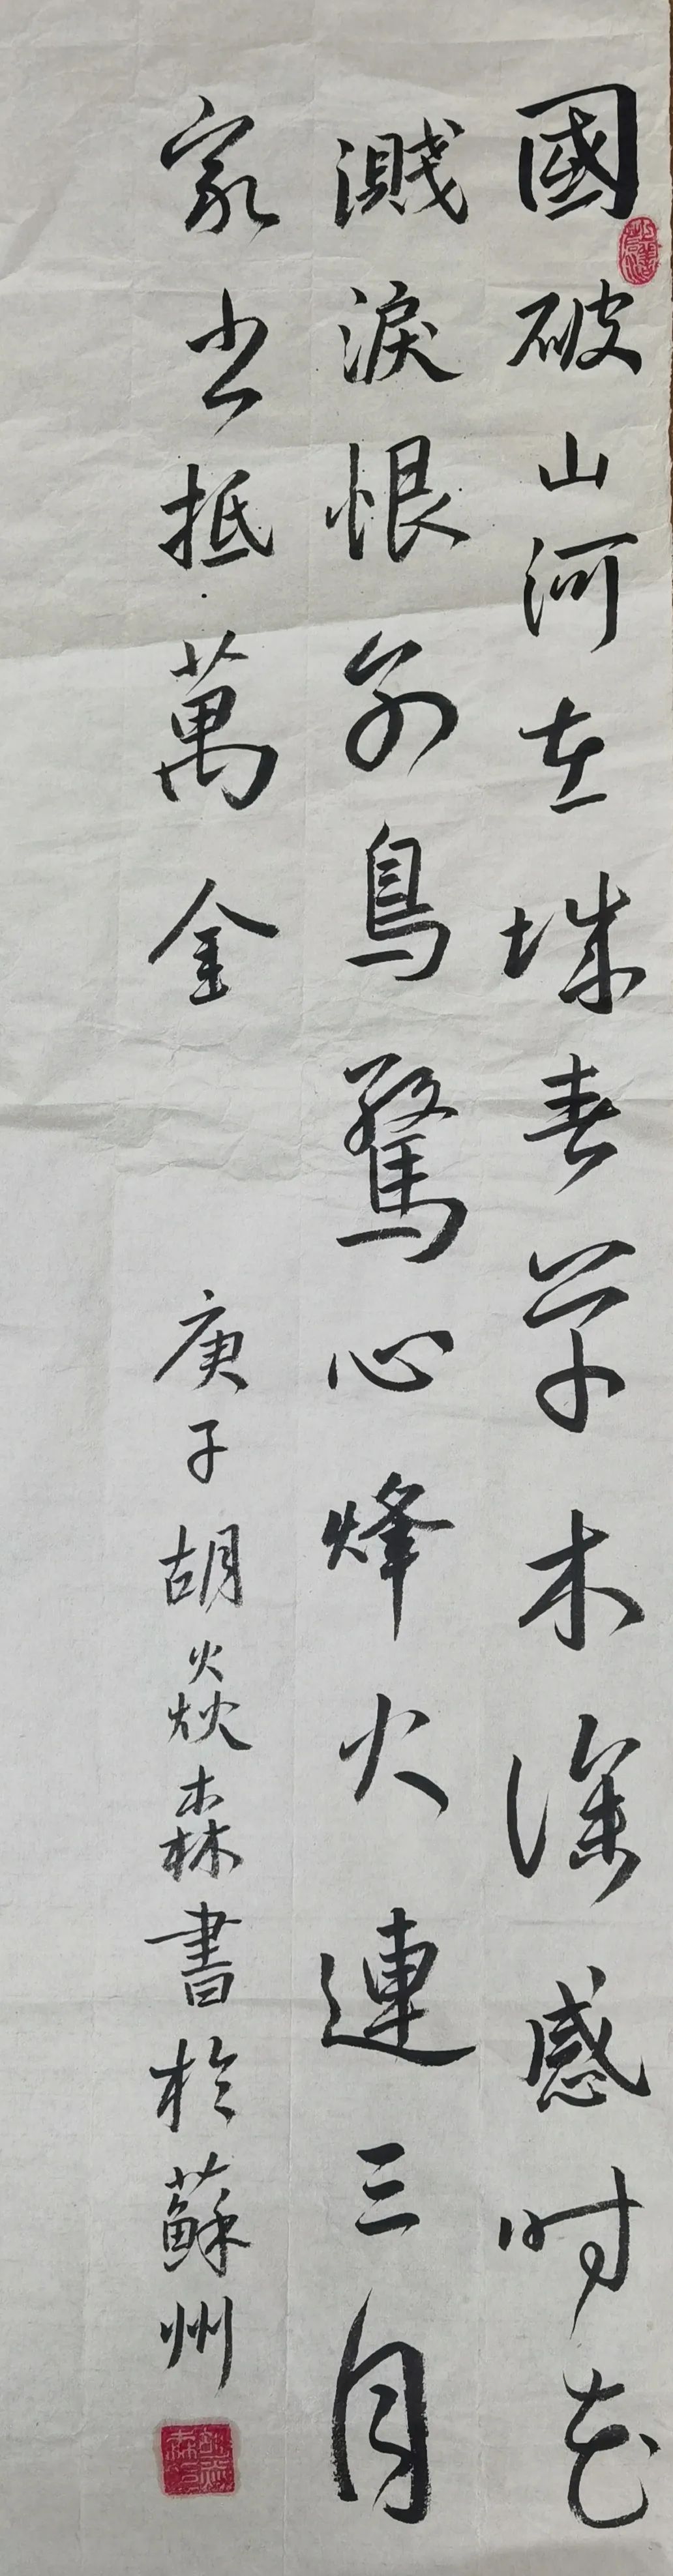 國破山河在城春草木深感时花
濺淚恨别鳥驚心烽火連三月
家书抵萬金
庚子胡焱森書於蘇州